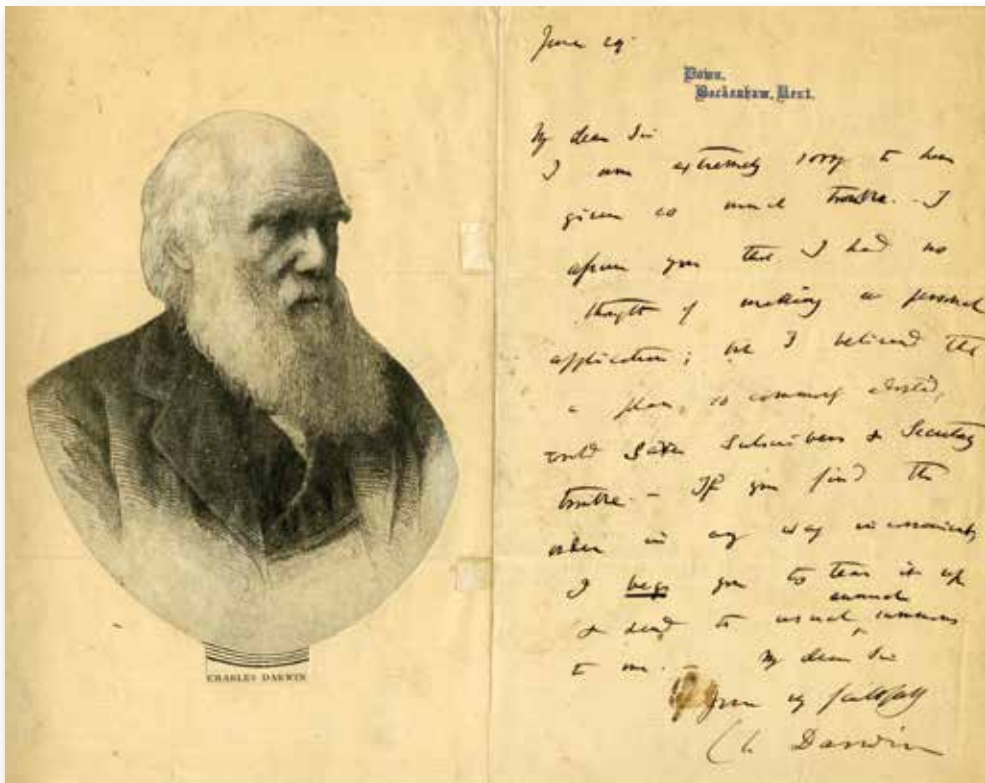 CHARLES DARWIN
June 29
Down,
Beckenham, Kent.
My dear Sir
I am extremely sorry to have
given so much trouble. - I
assure you that I had no
thought of making a personal
application; but I believed that
a plan, so commonly adopted,
would save Subscribers & Secretary
trouble. - If you find the
order in any way inconvenient
I beg you to tear it up
& send the usual annual summons
to me. - My dear Sir
Yours very faithfully
Ch. Darwin